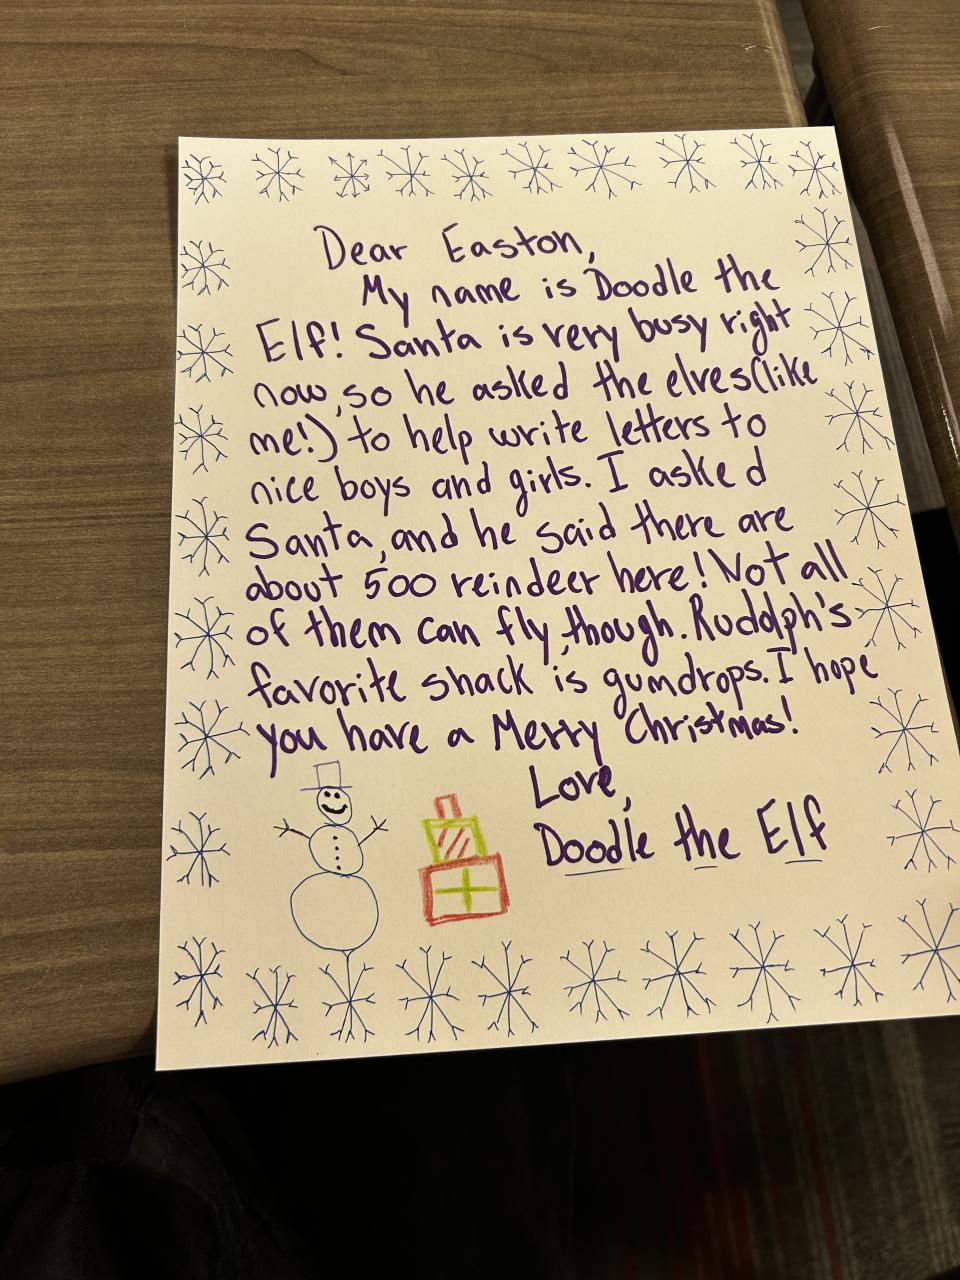 Dear Easton,
My name is Doodle the
Elf! Santa is very busy right
now, so he asked the elves(like
me!) to help write letters to
nice boys and girls. I asked
Santa, and he said there are
about 500 reindeer here! Not all
of them can fly, though. Rudolph's
favorite snack is gumdrops. I hope
you have a Merry Christmas!
Love,
Doodle the Elf